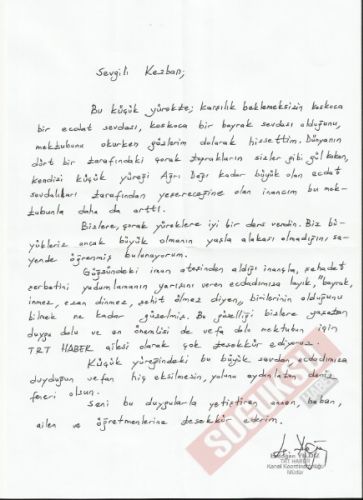 Sevgili Kezban;
Bu küçük yürekte; karşılık beklemeksizin koskoca
bir ecdat sevdası, koskoca bir bayrak sevdası olduğunu,
mektubunu okurken gözlerim dolarak hissettim. Dünyanın
dört bir tarafındaki çorak toprakların sizler gibi gül kokan,
kendisi küçük yüreği Ağrı Dağı kadar büyük olan ecdat
sevdalıları tarafından yeşereceğine olan inancım bu mek-
tubunla daha da arttı.
Bizlere, çorak yüreklere iyi bir ders verdin. Biz bü-
yükleriz ancak büyük olmanın yaşla alakası olmadığını, sa-
yende öğrenmiş bulunuyorum.
Göğsündeki iman ateşinden aldığı inançla, şehadet
şerbetini yudumlamanın yarısını veren ecdadımıza layık, bayrak,
inmez, ezan dinmez, şehit ölmez diyen, birilerinin olduğunu
bilmek ne kadar güzelmiş. Bu güzelliği bizlere yaşatan
duygu dolu ve en önemlisi de vefa dolu mektubun için
TRT HABER ailesi olarak çok teşekkür ediyoruz.
Küçük yüreğindeki bu büyük sevdan ecdadımıza
duyduğun vefan hiç eksilmesin, yolunu aydınlatan deniz
feneri olsun.
Seni bu duygularla yetiştiren annen, baban,
ailen ve öğretmenlerine teşekkür ederim.
TRT HABER
Kanal Koordinatörlüğü
Müdür